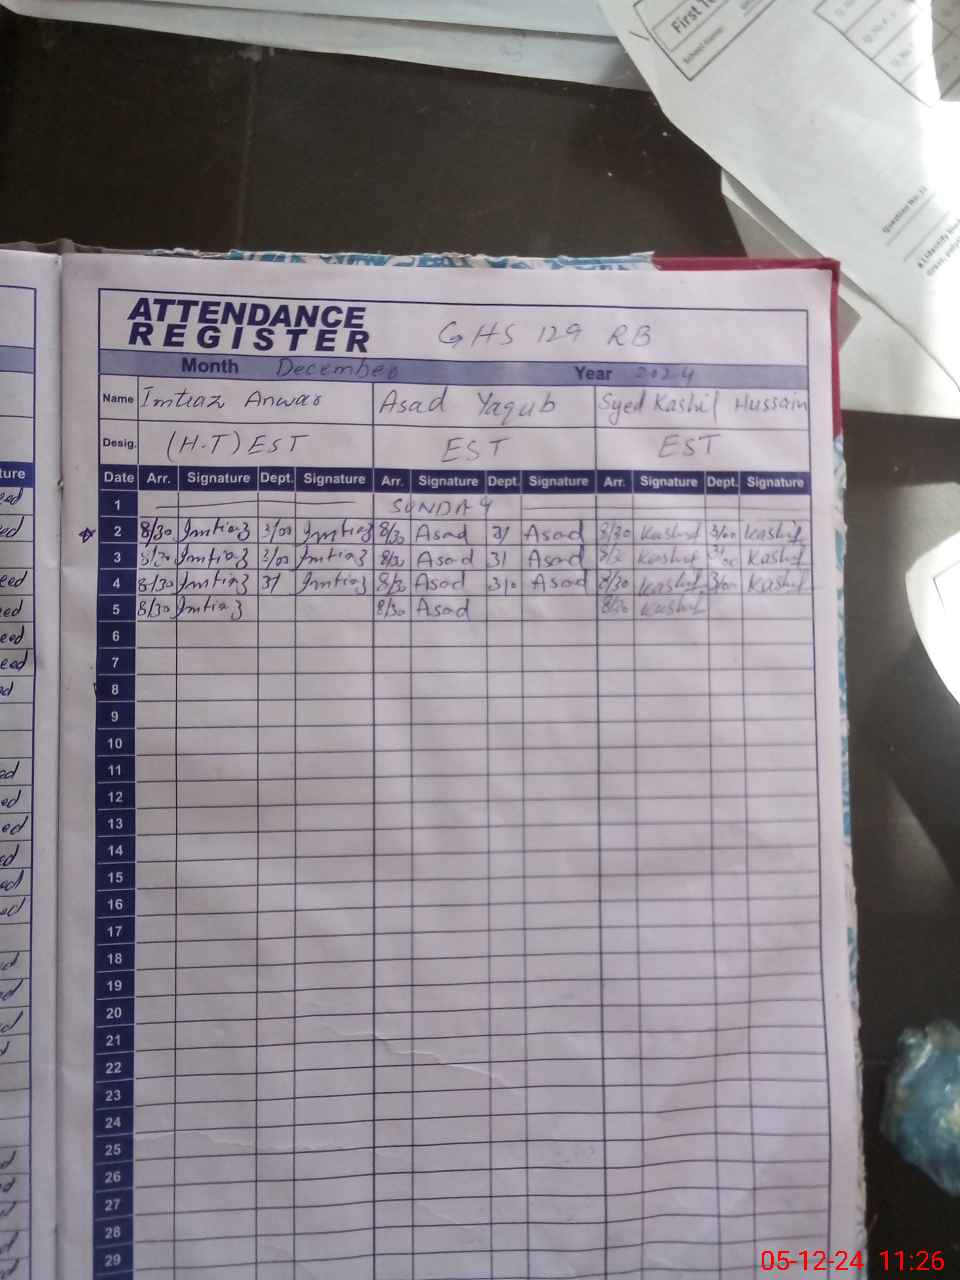 First
School Name:
Question No: 3
ATTENDANCE
REGISTER GHS 129 RB
Month December Year 2024
Name Imtiaz Anwar Asad Yaqub Syed Kashif Hussain
Desig. (H-T) EST EST EST
Date Arr. Signature Dept. Signature Arr. Signature Dept. Signature Arr. Signature Dept. Signature
1 SUNDAY
2 8/30 Imtiaz 3/00 Imtiaz 8/30 Asad 3/ Asad 8/30 Kashif 3/00 Kashif
3 8/30 Imtiaz 3/00 Imtiaz 8/30 Asad 3/ Asad 8/30 Kashif 3/00 Kashif
4 8/30 Imtiaz 3/ Imtiaz 8/30 Asad 3/0 Asad 8/30 Kashif 3/00 Kashif
5 8/30 Imtiaz 8/30 Asad 8/30 Kashif
6
7
8
9
10
11
12
13
14
15
16
17
18
19
20
21
22
23
24
25
26
27
28
29
05-12-24 11:26